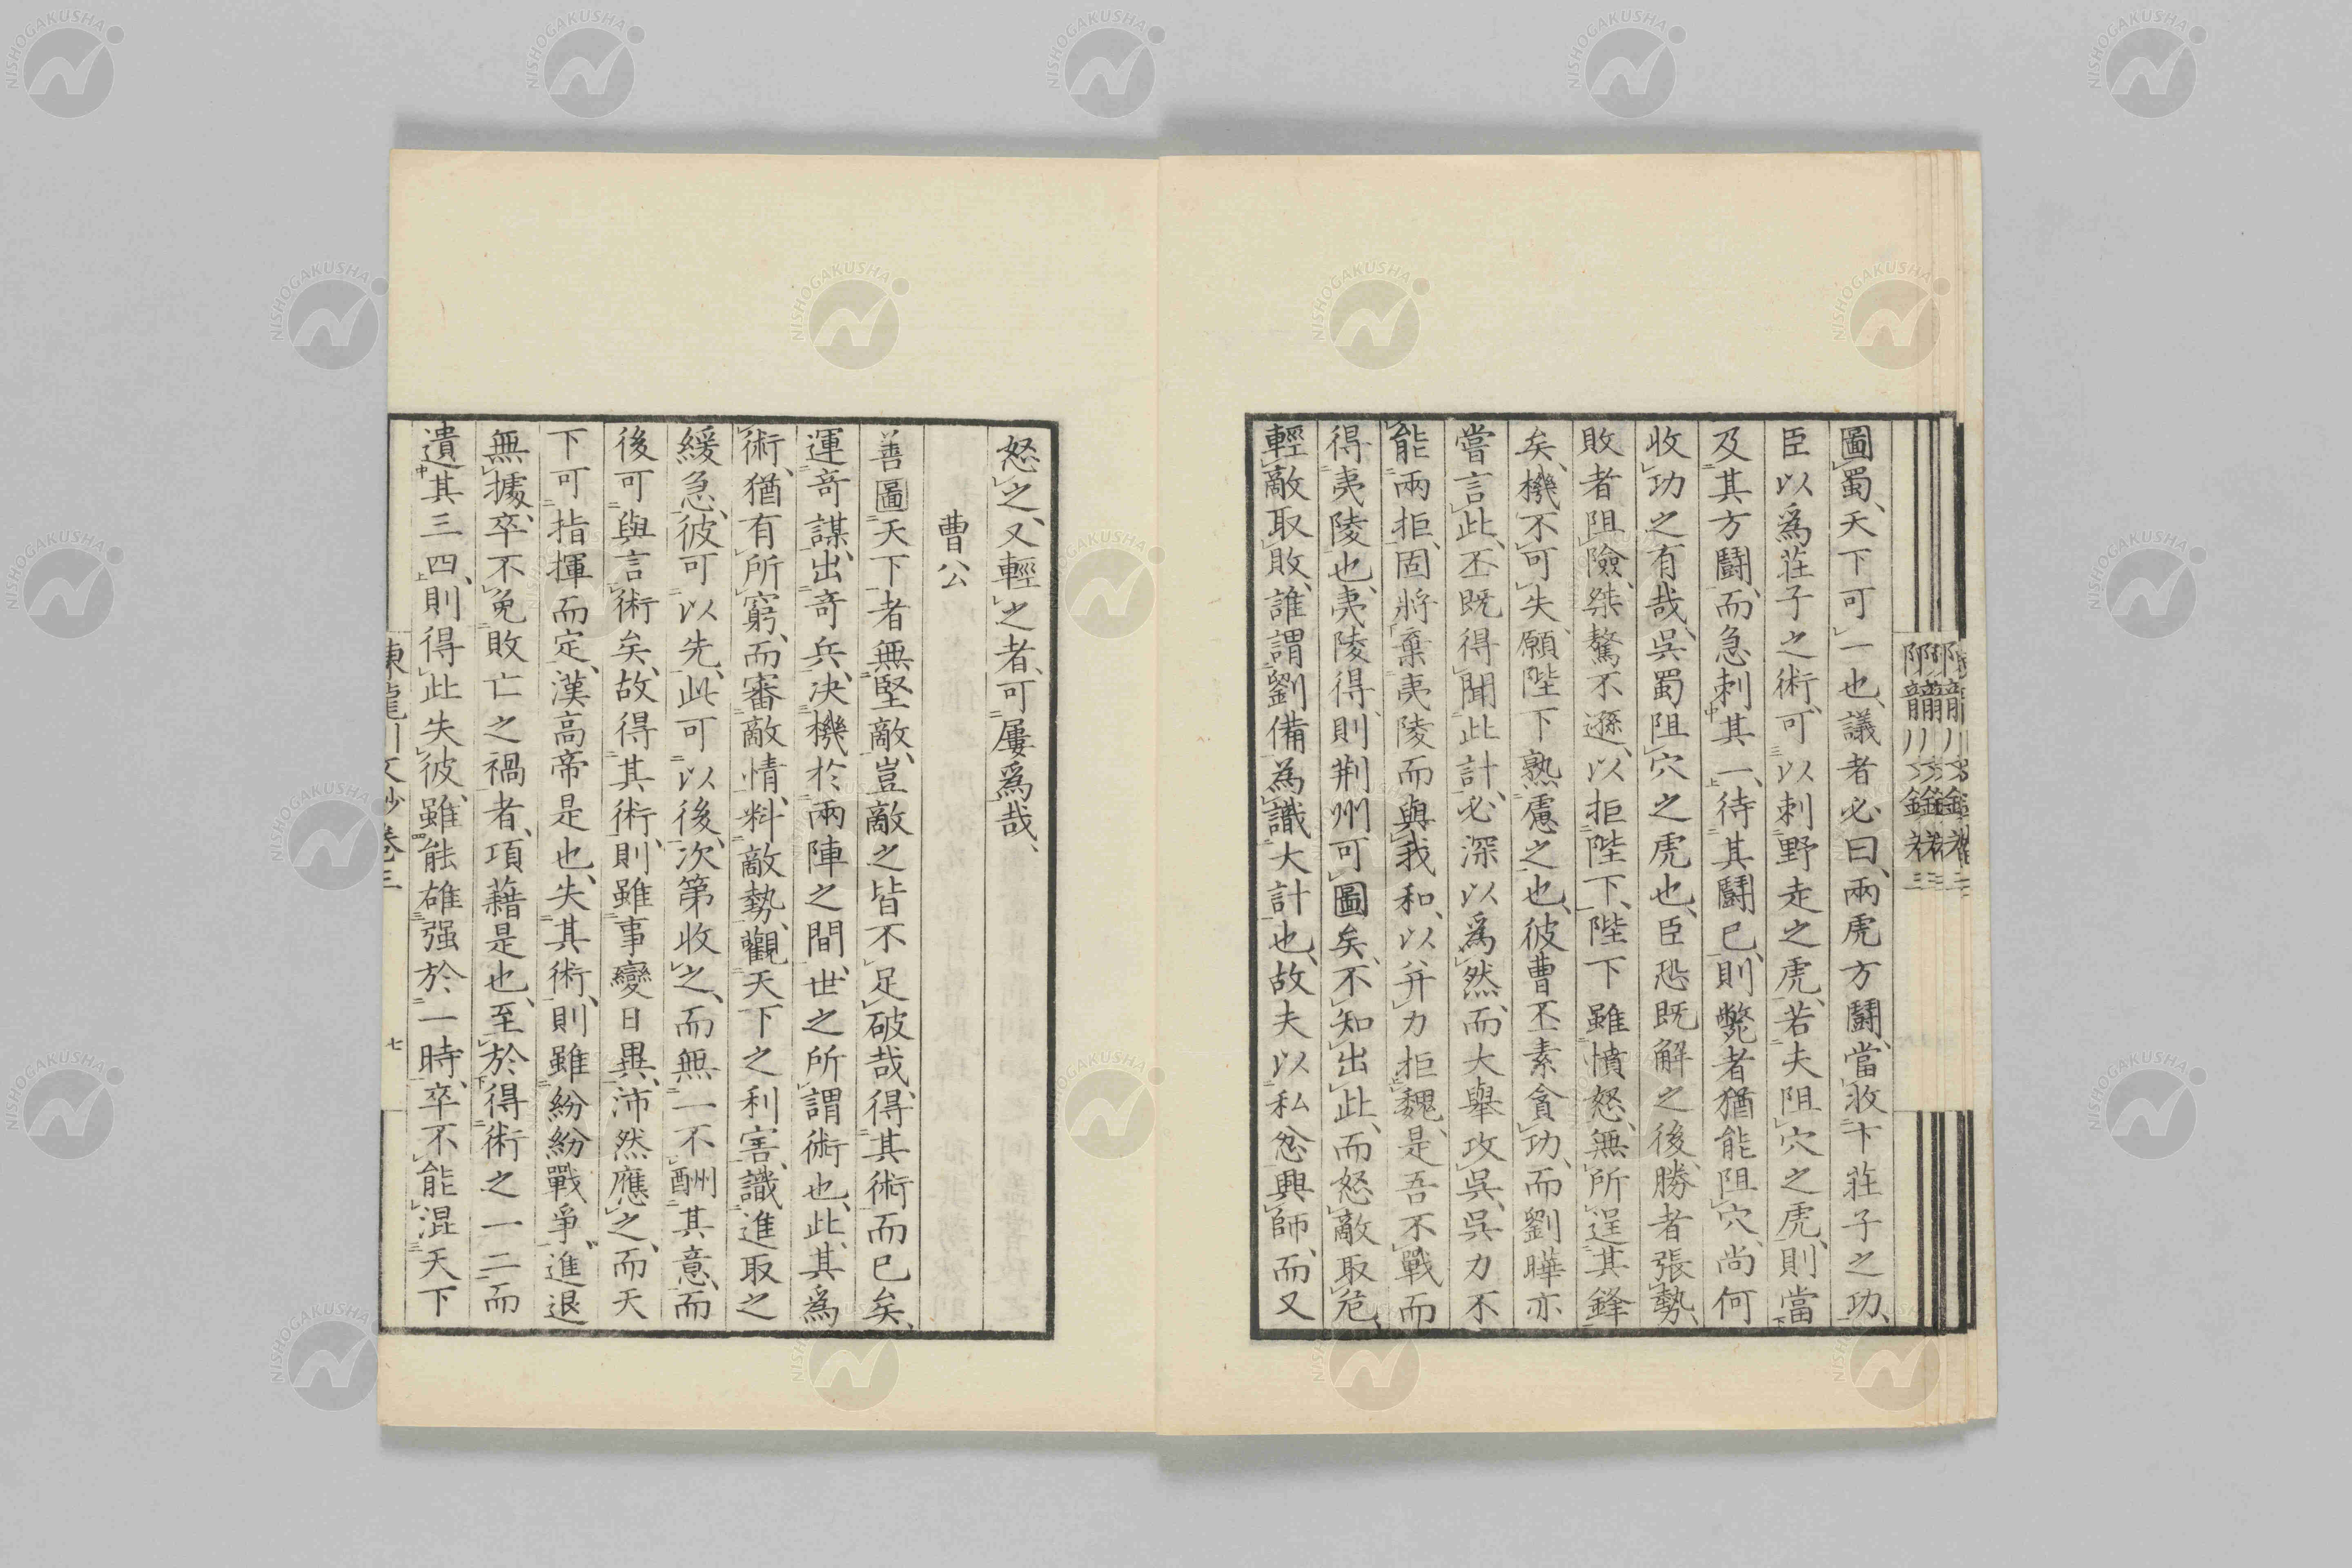 圖蜀、天下可一也、議者必曰、兩虎方鬪、當收卞莊子之功、
臣以爲莊子之術、可以刺野走之虎、若夫阻穴之虎、則當
及其方鬪、而急刺其一、待其鬪已、則斃者猶能阻穴、尚何
收功之有哉、吳蜀阻穴之虎也、臣恐既解之後、勝者張勢、
敗者阻險、桀驁不遜、以拒陛下、陛下雖憤怒、無所逞其鋒
矣、機不可失、願陛下熟慮之也、彼曹丕素貪功、而劉曄亦
嘗言此、丕既得聞此計、必深以爲然、而大舉攻吳、吳力不
能兩拒、固將棄夷陵而與我和、以并力拒魏、是吾不戰而
得夷陵也、夷陵得、則荆州可圖矣、不知出此、而怒敵取危、
輕敵取敗、誰謂劉備為識大計也、故夫以私忿興師、而又
怒之、又輕之者、可屢爲哉、
曹公
善圖天下者無堅敵、豈敵之皆不足破哉、得其術而已矣、
運奇謀、出奇兵、決機於兩陣之間、世之所謂術也、此其為
術、猶有所窮、而審敵情、料敵勢、觀天下之利害、識進取之
緩急、彼可以先、此可以後、次第收之、而無一不酬其意、而
後可與言術矣、故得其術、則雖事變日異、沛然應之、而天
下可指揮而定、漢高帝是也、失其術、則雖紛紛戰爭、進退
無據、卒不免敗亡之禍者、項藉是也、至於得術之一二而
遺其三四、則得此失彼、雖能雄强於一時、卒不能混天下
陳龍川文鈔卷三
七
NISHOGAKUSHA